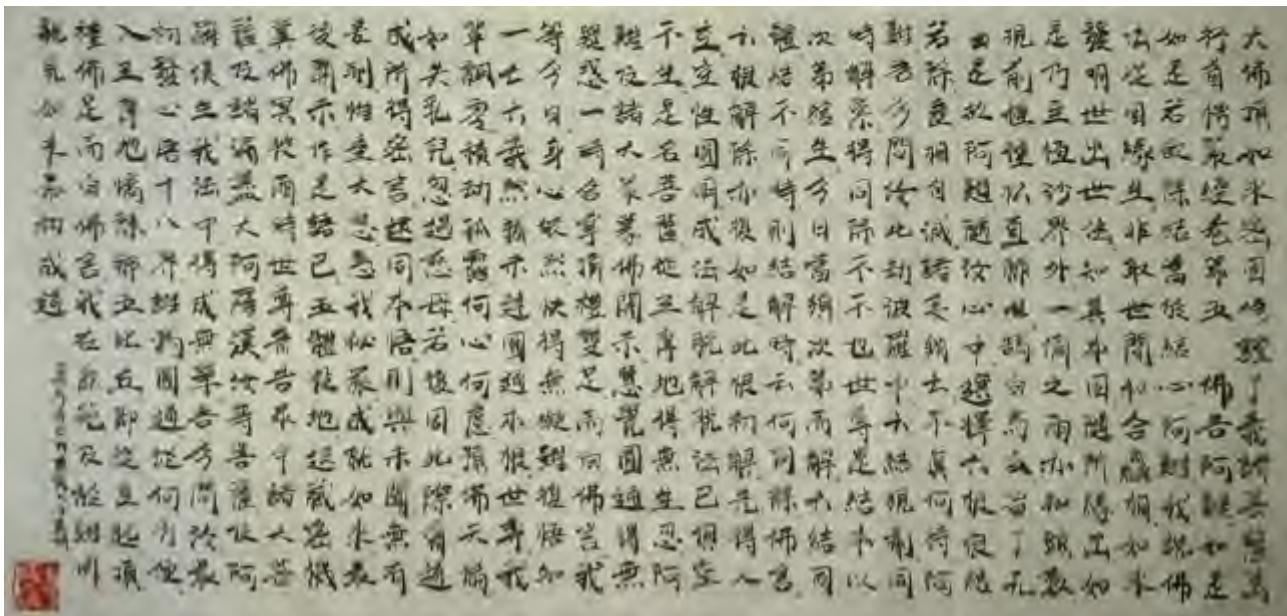 大佛頂如來密因修證了義諸菩薩萬
行首楞嚴經卷第五 佛告阿難如是
如是若欲除結當於結心阿難我說佛
法從因緣生非取世間和合麤相如來
發明世出世法知其本因隨所緣出如
是乃至恒沙界外一滴之雨亦知頭數
現前種種松直棘曲鵠白烏玄皆了元
由是故阿難隨汝心中選擇六根根結
若除塵相自滅諸妄銷亡不真何待阿
難吾今問汝此劫波羅巾六結現前同
時解縈得同除不不也世尊是結本以
次第綰生今日當須次第而解六結同
體結不同時則結解時云何同除佛言
六根解除亦復如是此根初解先得人
空空性圓明成法解脫解脫法已俱空
不生是名菩薩從三摩地得無生忍阿
難及諸大眾蒙佛開示慧覺圓通得無
疑惑一時合掌頂禮雙足而白佛言我
等今日身心皎然快得無礙雖復悟知
一六亡義然猶未達圓通本根世尊我
輩飄零積劫孤露何心何慮預佛天倫
如失乳兒忽遇慈母若復因此際會道
成所得密言還同本悟則與未聞無有
差別惟垂大悲惠我秘嚴成就如來最
後開示作是語已五體投地退藏密機
冀佛冥授爾時世尊普告眾中諸大菩
薩及諸漏盡大阿羅漢汝等菩薩及阿
羅漢生我法中得成無學吾今問汝最
初發心悟十八界誰為圓通從何方便
入三摩地憍陳那五比丘即從座起頂
禮佛足而白佛言我在鹿苑及於雞
觀見如來最初成道